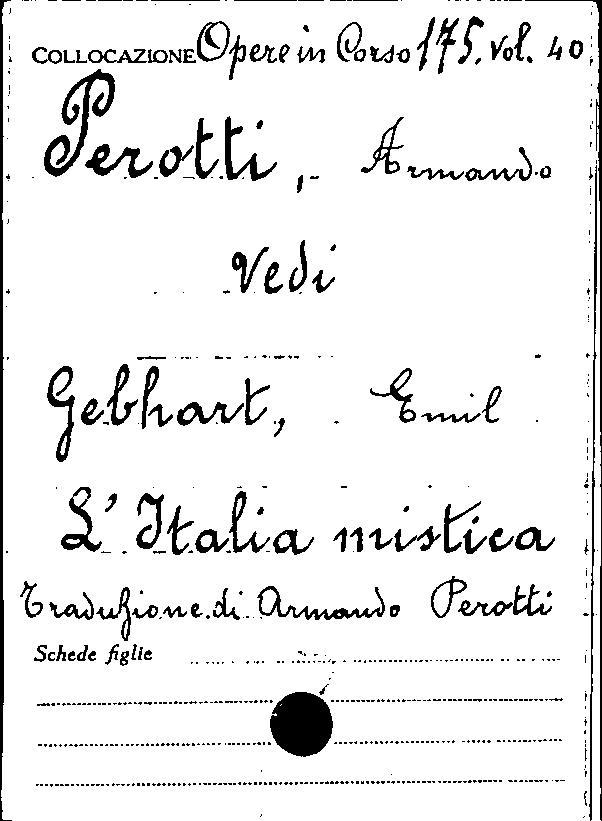 COLLOCAZIONE Opere in Corso 175. vol. 40
Perotti, Armando
Vedi
Gebhart, Emil
L'Italia mistica
Traduzione di Armando Perotti
Schede figlie